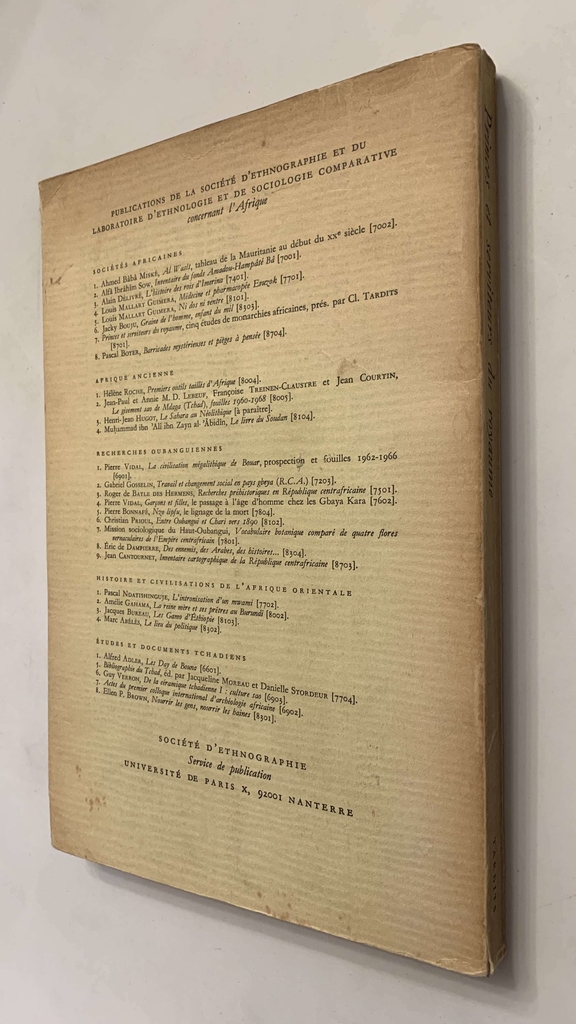 PUBLICATIONS DE LA SOCIÉTÉ D'ETHNOGRAPHIE ET DU
LABORATOIRE D'ETHNOLOGIE ET DE SOCIOLOGIE COMPARATIVE
concernant l'Afrique
SOCIÉTÉS AFRICAINES
1. Ahmed Bâbâ MISKÉ, Al Wasît, tableau de la Mauritanie au début du XXe siècle [7002].
2. Alfâ Ibrâhîm SOW, Inventaire du fonds Amadou-Hampâté Bâ [7001].
3. Alain DELIVRÉ, L'histoire des rois d'Imerina [7401].
4. Louis MALLART GUIMERA, Médecine et pharmacopée Evuzok [7701].
5. Louis MALLART GUIMERA, Ni dos ni ventre [8101].
6. Jacky BOUJU, Graine de l'homme, enfant du mil [8303].
7. Princes et serviteurs du royaume, cinq études de monarchies africaines, prés. par Cl. TARDITS
[8701].
8. Pascal BOYER, Barricades mystérieuses et pièges à pensée [8704].
AFRIQUE ANCIENNE
1. Hélène ROCHE, Premiers outils taillés d'Afrique [8004].
2. Jean-Paul et Annie M. D. LEBEUF, Françoise TREINEN-CLAUSTRE et Jean COURTIN,
Le gisement sao de Mdaga (Tchad), fouilles 1960-1968 [8005].
3. Henri-Jean HUGOT, Le Sahara au Néolithique [à paraître].
4. Muḥammad ibn 'Alî ibn Zayn al-'Âbidîn, Le livre du Soudan [8104].
RECHERCHES OUBANGUIENNES
1. Pierre VIDAL, La civilisation mégalithique de Bouar, prospection et fouilles 1962-1966
[6901].
2. Gabriel GOSSELIN, Travail et changement social en pays gbeya (R.C.A.) [7203].
3. Roger de BAYLE DES HERMENS, Recherches préhistoriques en République centrafricaine [7501].
4. Pierre VIDAL, Garçons et filles, le passage à l'âge d'homme chez les Gbaya Kara [7602].
5. Pierre BONNAFÉ, Nzo lipfu, le lignage de la mort [7804].
6. Christian PRIOUL, Entre Oubangui et Chari vers 1890 [8102].
7. Mission sociologique du Haut-Oubangui, Vocabulaire botanique comparé de quatre flores
vernaculaires de l'Empire centrafricain [7801].
8. Éric de DAMPIERRE, Des ennemis, des Arabes, des histoires... [8304].
9. Jean CANTOURNET, Inventaire cartographique de la République centrafricaine [8703].
HISTOIRE ET CIVILISATIONS DE L'AFRIQUE ORIENTALE
1. Pascal NDAYISHINGUJE, L'intronisation d'un mwami [7702].
2. Amélie GAHAMA, La reine mère et ses prêtres au Burundi [8002].
3. Jacques BUREAU, Les Gamo d'Éthiopie [8103].
4. Marc ABÉLÈS, Le lieu du politique [8302].
ÉTUDES ET DOCUMENTS TCHADIENS
1. Alfred ADLER, Les Day de Bouna [6601].
5. Bibliographie du Tchad, éd. par Jacqueline MOREAU et Danielle STORDEUR [7704].
6. Guy VERRON, De la céramique tchadienne I : culture sao [6903].
7. Actes du premier colloque international d'archéologie africaine [6902].
8. Ellen P. BROWN, Nourrir les gens, nourrir les haines [8301].
SOCIÉTÉ D'ETHNOGRAPHIE
Service de publication
UNIVERSITÉ DE PARIS X, 92001 NANTERRE
Princes et serviteurs du royaume
TARDITS